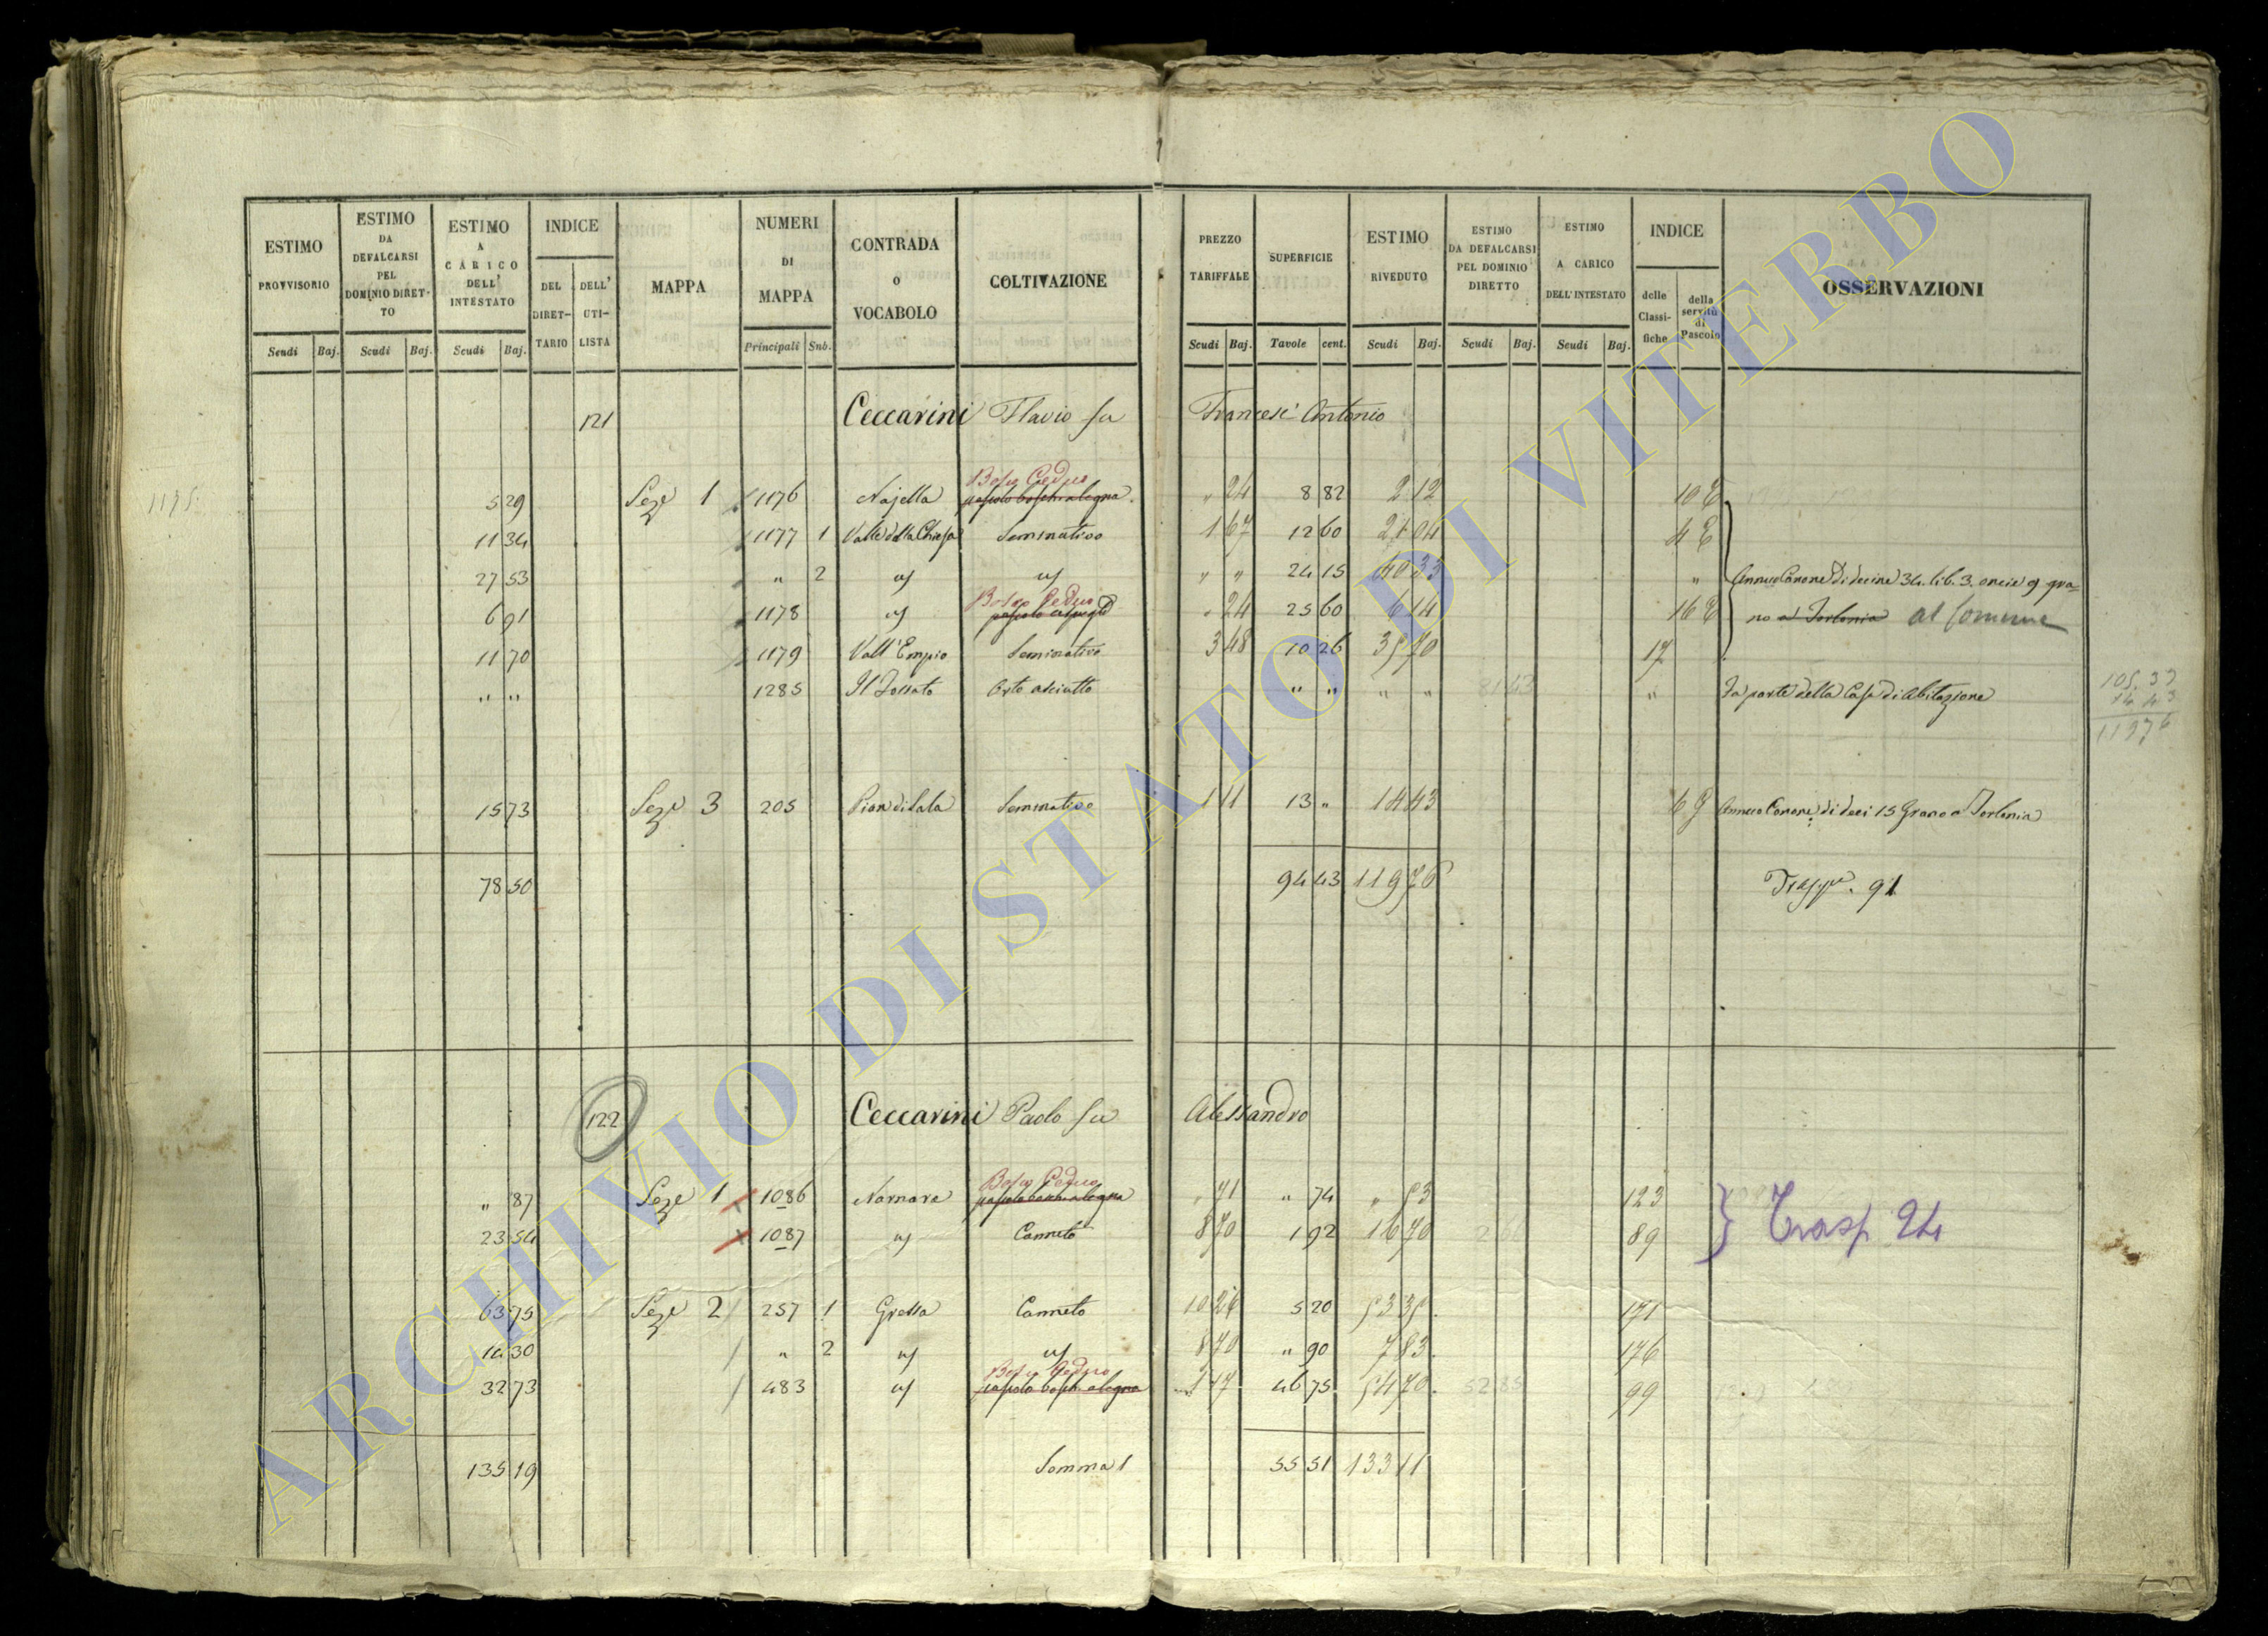 ESTIMO PROVVISORIO
ESTIMO DA DEFALCARSI PEL DOMINIO DIRET-TO
ESTIMO A CARICO DELL' INTESTATO
INDICE
DEL DIRET-TARIO
DELL' UTI-LISTA
MAPPA
NUMERI DI MAPPA
CONTRADA O VOCABOLO
COLTIVAZIONE
PREZZO TARIFFALE
SUPERFICIE
ESTIMO RIVEDUTO
ESTIMO DA DEFALCARSI PEL DOMINIO DIRETTO
ESTIMO A CARICO DELL'INTESTATO
INDICE
delle Classi-fiche
della servitù di Pascolo
OSSERVAZIONI
Scudi Baj. Scudi Baj. Scudi Baj. Principali Sub. Scudi Baj. Tavole cent. Scudi Baj. Scudi Baj. Scudi Baj.
121 Ceccarini Flavio fu Francesc' Antonio
Bosco Ceduo
1175. 5 29 Seze 1 1176 Najella " 24 8 82 2 12 10 E
11 34 1177 1 Valle della Chiesa Seminativo 1 67 12 60 21 04 4 E
27 53 " 2 " " 24 15 40 33 " Annuo Canone di decine 34. lib. 3. oncie 9 gra=
Bosco Ceduo
6 91 1178 " 24 25 60 6 14 16 E no a Torlonia al Comune
11 70 1179 Vall'Empio Seminativo 3 48 10 26 35 70 17
" " 1285 Il Fossato Orto asciutto " " " " " Fa parte della Casa di Abitazione
105. 33
14 43
119 76
15 73 Seze 3 205 Pian di Sala Seminativo 1 11 13 " 14 43 6 G Annuo Canone di deci 15 Grano a Torlonia
78 50 94 43 119 76 91
122 Ceccarini Paolo fu Alessandro
Bosco Ceduo
" 87 Seze 1 1086 Nornare " 71 " 74 " 53 123
23 54 1087 Canneto 8 70 1 92 16 70 89
Trasp 24
63 75 Seze 2 257 1 Grossa Canneto 10 26 5 20 53 35 171
10 30 " 2 8 70 " 90 7 83 176
Bosco Ceduo
32 73 483 1 17 46 75 54 70 99
135 19 Somma 1 55 51 133 11
ARCHIVIO DI STATO DI VITERBO